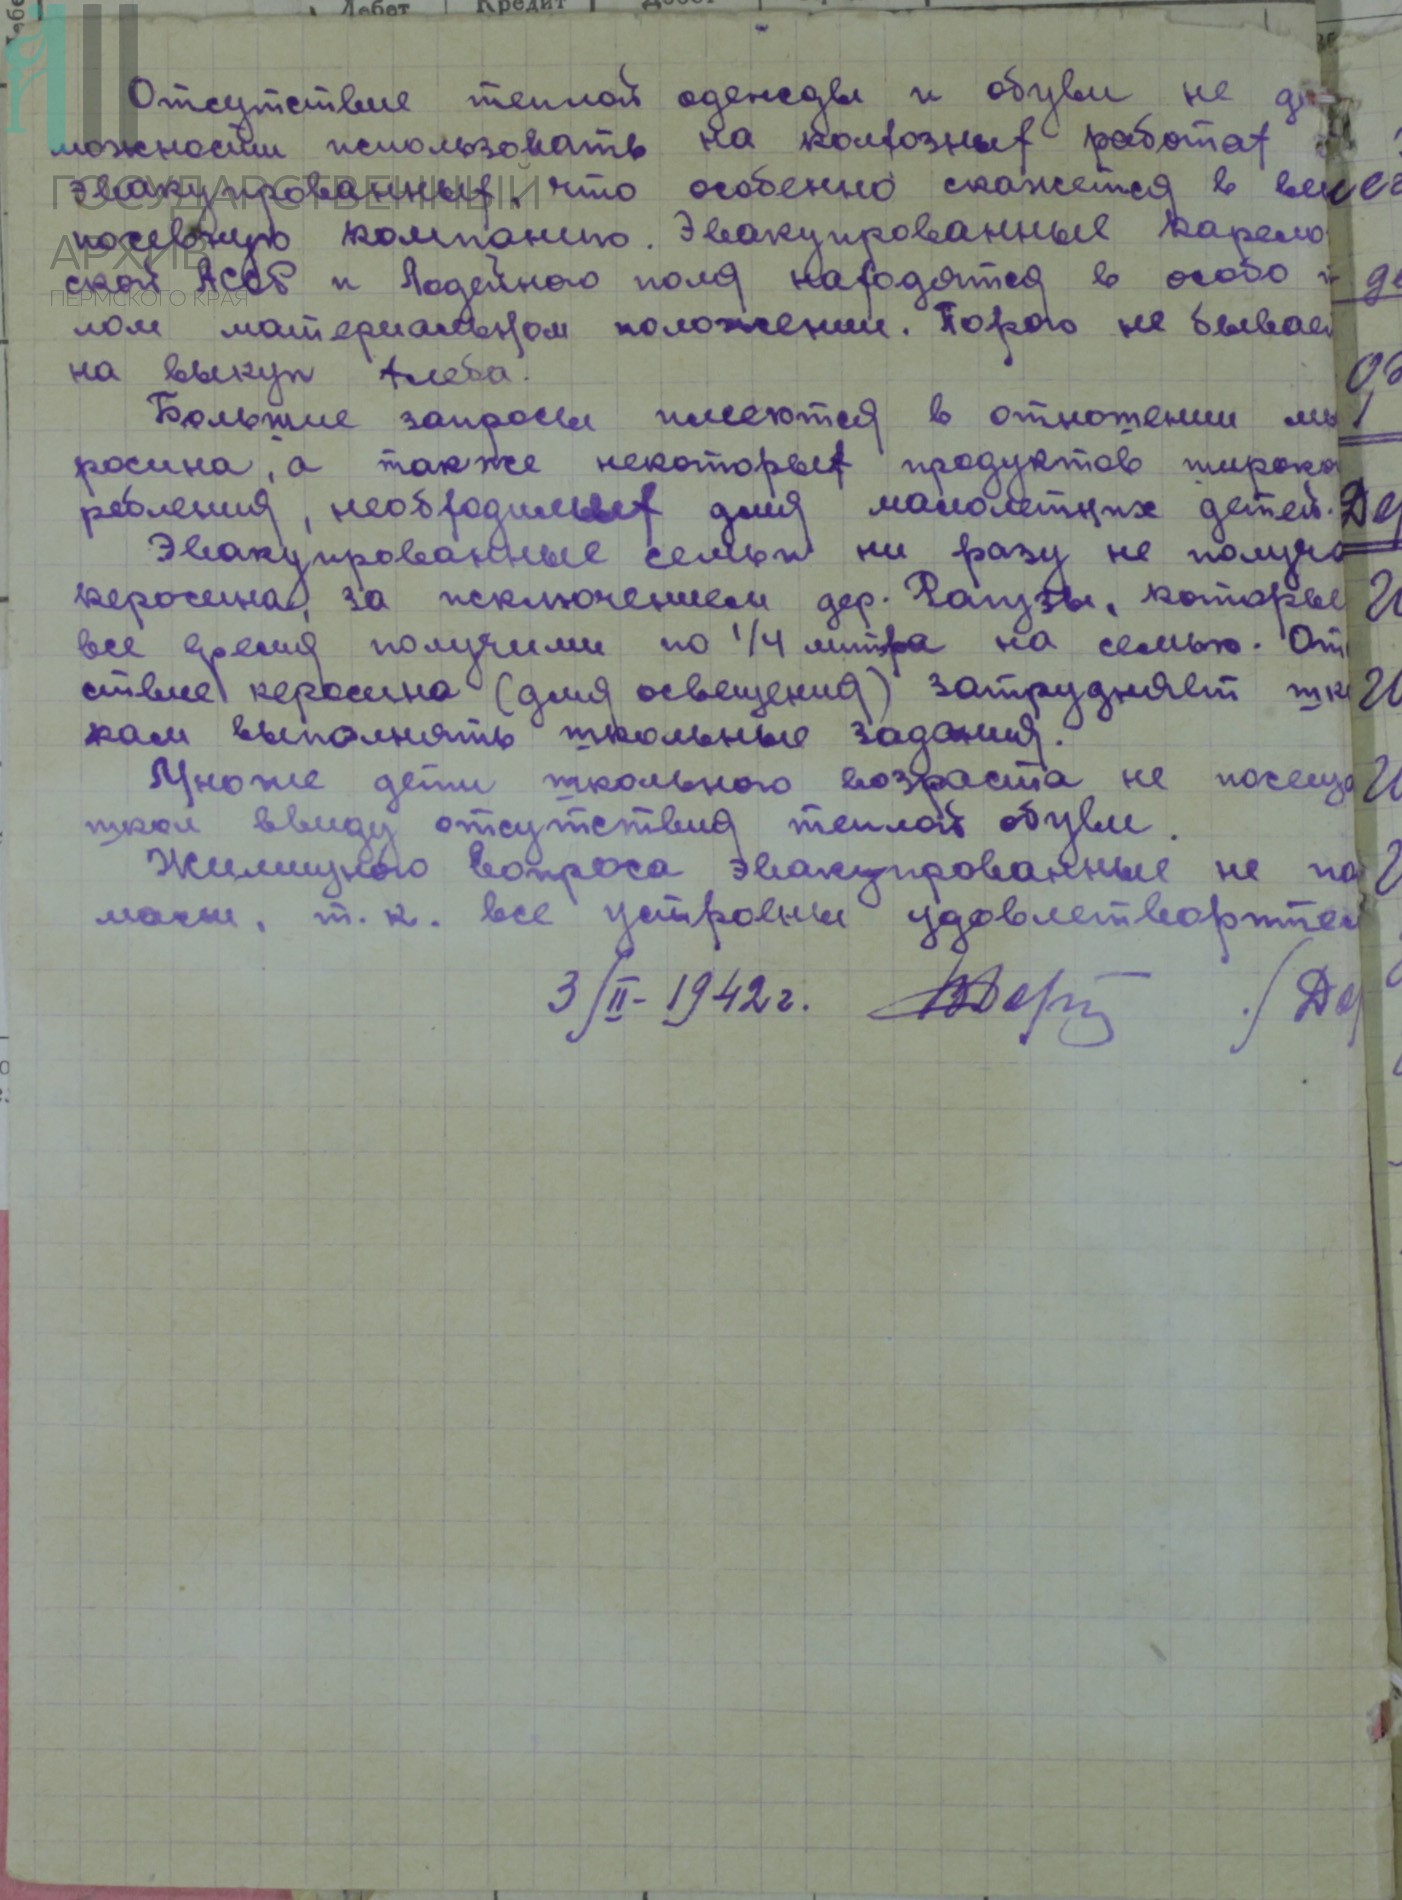 Дебет Кредит Дебет
Отсутствие теплой одежды и обуви не д
можности использовать на колхозных работах
эвакуированных, что особенно скажется в весе
посевную компанию. Эвакуированные Карело
ской АССР и Лодейного поля находятся в особо
лом материальном положении. Порою не бывает
на выкуп хлеба.
Большие запросы имеются в отношении мы
росина, а также некоторых продуктов широко
ребления, необходимых для малолетних детей.
Эвакуированные семьи ни разу не получа
керосина, за исключением дер. Рапузы, которые
все время получили по 1/4 литра на семью. От
ствие керосина (для освещения) затрудняет шк
кам выполнять школьные задания.
Многие дети школьного возраста не посеща
школ ввиду отсутствия теплой обуви.
Жилищного вопроса эвакуированные не по
мают, т.к. все устроены удовлетворител
3/II-1942г. /Де
ГОСУДАРСТВЕННЫЙ
АРХИВ
ПЕРМСКОГО КРАЯ